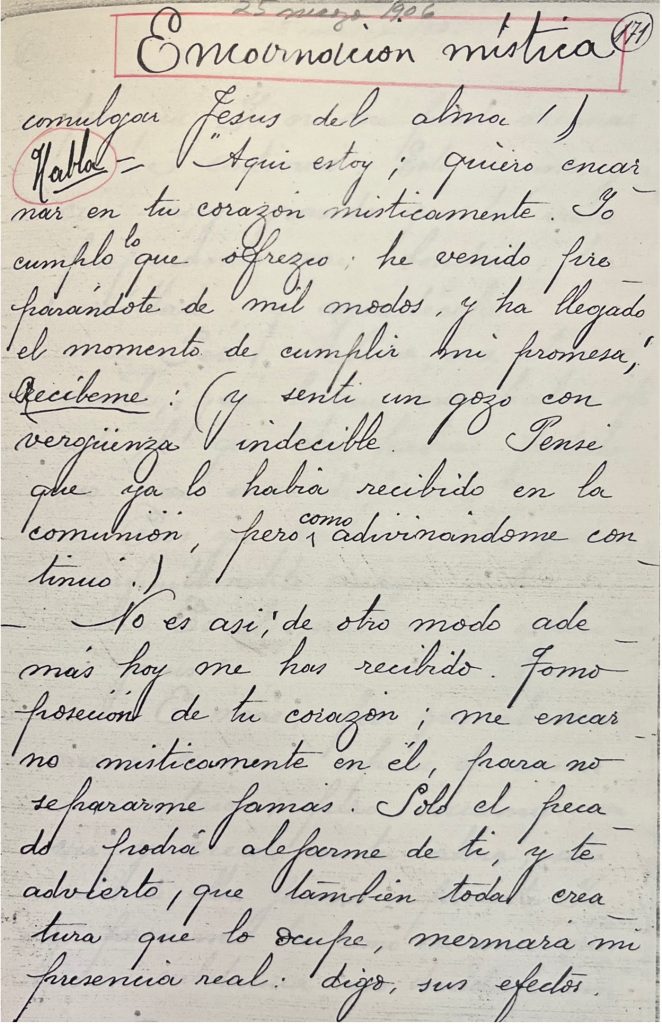 25 marzo 1906
Encarnacion mística
171
comulgar Jesus del alma!)
Habla = "Aqui estoy; quiero encar
nar en tu corazón misticamente. Yo
cumplo lo que ofrezco; he venido pre
parándote de mil modos, y ha llegado
el momento de cumplir mi promesa;
Recibeme: (y senti un gozo con
vergüenza indecible. Pensé
que ya lo habia recibido en la
comunión, pero como adivinándome con-
tinuó.)
- No es asi; de otro modo ade-
más hoy me has recibido. Tomo
poseción de tu corazón; me encar-
no misticamente en él, para no
separarme jamas. Solo el peca-
do podrá alejarme de ti, y te
advierto, que también toda crea-
tura que lo ocupe, mermará mi
presencia real: digo, sus efectos.